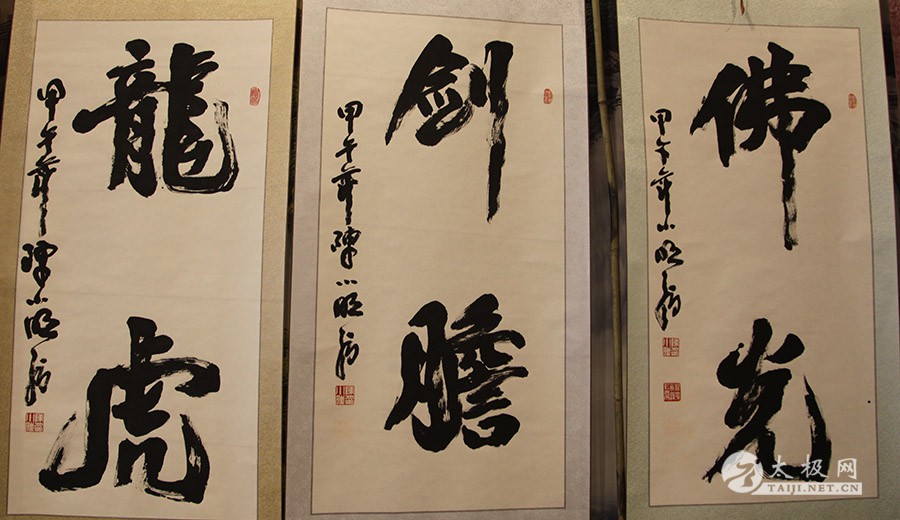 龍虎
甲午年陳小旺書
剑膽
甲午年陳小旺書
佛光
甲午年小旺書
太极网
TAIJI.NET.CN